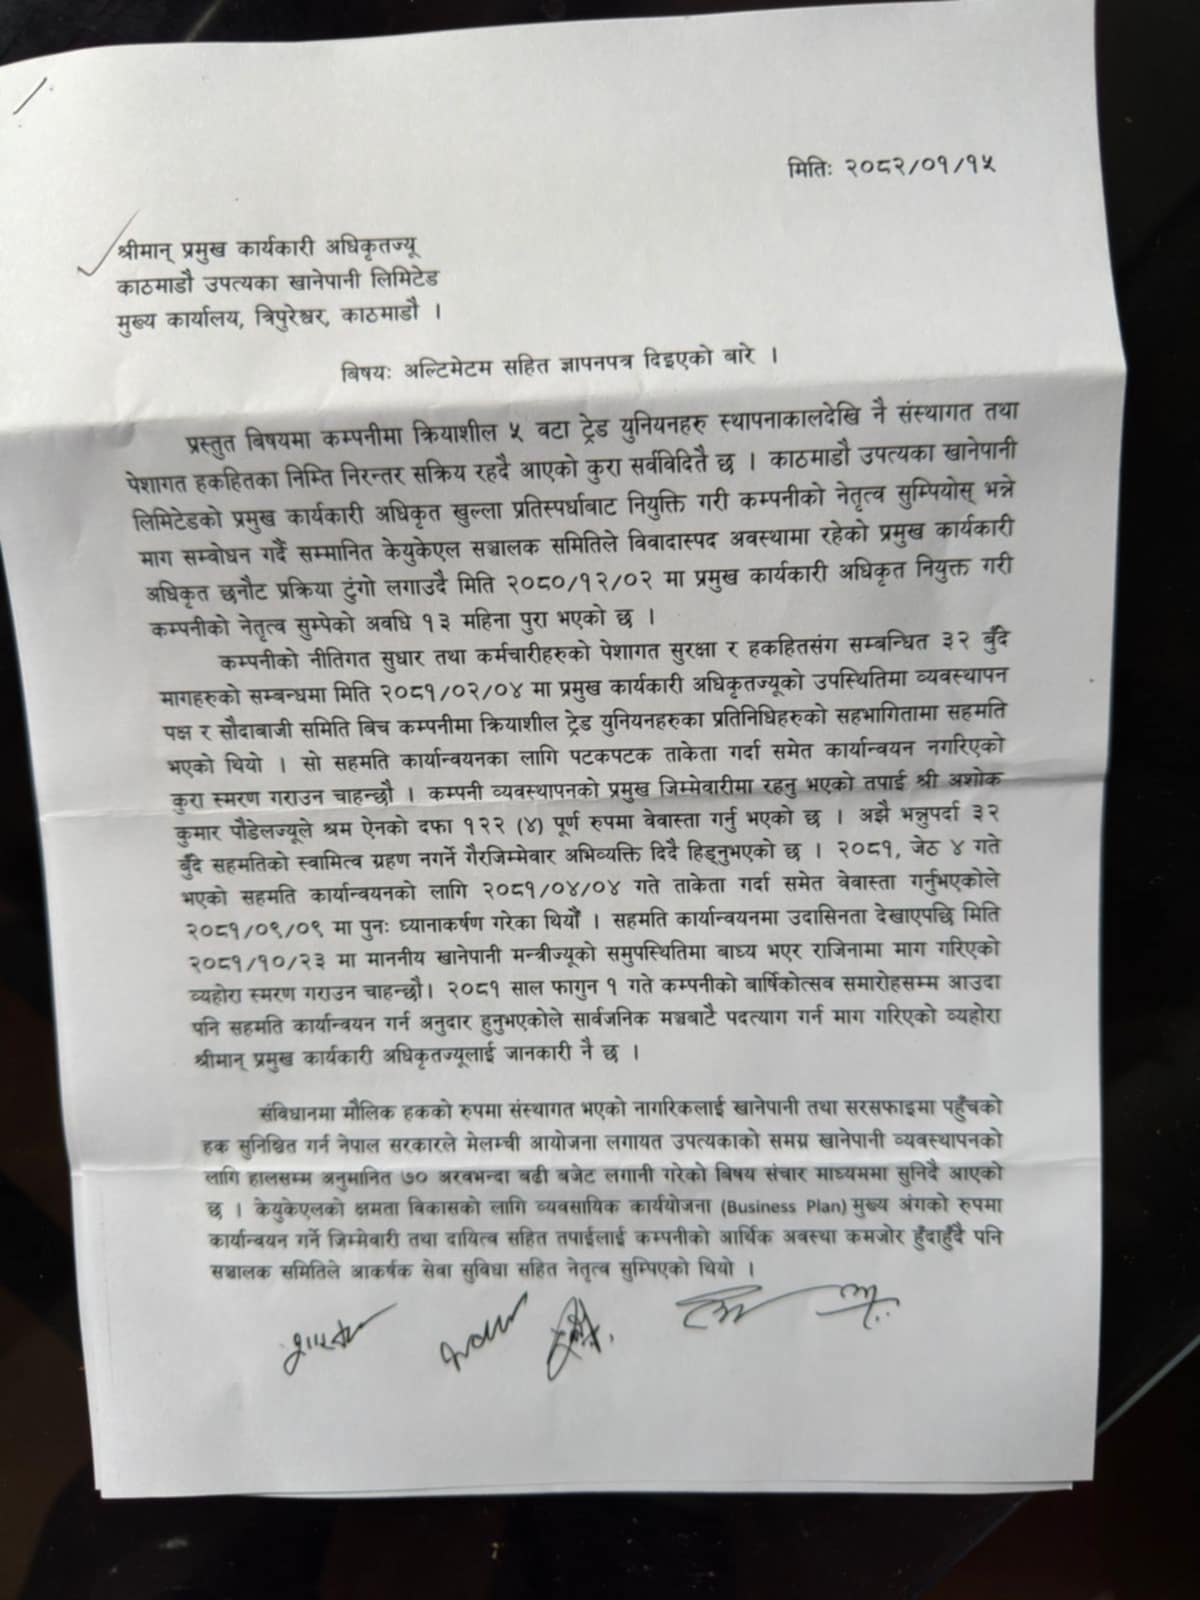 मितिः २०८२/०१/१५
श्रीमान् प्रमुख कार्यकारी अधिकृतज्यू
काठमाडौ उपत्यका खानेपानी लिमिटेड
मुख्य कार्यालय, त्रिपुरेश्वर, काठमाडौ ।
बिषयः अल्टिमेटम सहित ज्ञापनपत्र दिइएको बारे ।
प्रस्तुत बिषयमा कम्पनीमा क्रियाशील ५ वटा ट्रेड युनियनहरु स्थापनाकालदेखि नै संस्थागत तथा
पेशागत हकहितका निम्ति निरन्तर सक्रिय रहदै आएको कुरा सर्वविदितै छ । काठमाडौ उपत्यका खानेपानी
लिमिटेडको प्रमुख कार्यकारी अधिकृत खुल्ला प्रतिस्पर्धाबाट नियुक्ति गरी कम्पनीको नेतृत्व सुम्पियोस् भन्ने
माग सम्बोधन गर्दै सम्मानित केयुकेएल सञ्चालक समितिले विवादास्पद अवस्थामा रहेको प्रमुख कार्यकारी
अधिकृत छनौट प्रक्रिया टुंगो लगाउदै मिति २०८०/१२/०२ मा प्रमुख कार्यकारी अधिकृत नियुक्त गरी
कम्पनीको नेतृत्व सुम्पेको अवधि १३ महिना पुरा भएको छ ।
कम्पनीको नीतिगत सुधार तथा कर्मचारीहरुको पेशागत सुरक्षा र हकहितसंग सम्बन्धित ३२ बुँदे
मागहरुको सम्बन्धमा मिति २०८१/०२/०४ मा प्रमुख कार्यकारी अधिकृतज्यूको उपस्थितिमा व्यवस्थापन
पक्ष र सौदाबाजी समिति बिच कम्पनीमा क्रियाशील ट्रेड युनियनहरुका प्रतिनिधिहरुको सहभागितामा सहमति
भएको थियो । सो सहमति कार्यान्वयनका लागि पटकपटक ताकेता गर्दा समेत कार्यान्वयन नगरिएको
कुरा स्मरण गराउन चाहन्छौ । कम्पनी व्यवस्थापनको प्रमुख जिम्मेवारीमा रहनु भएको तपाई श्री अशोक
कुमार पौडेलज्यूले श्रम ऐनको दफा १२२ (४) पूर्ण रुपमा वेवास्ता गर्नु भएको छ । अझै भन्नुपर्दा ३२
बुँदे सहमतिको स्वामित्व ग्रहण नगर्ने गैरजिम्मेवार अभिव्यक्ति दिदै हिड्नुभएको छ । २०८१, जेठ ४ गते
भएको सहमति कार्यान्वयनको लागि २०८१/०४/०४ गते ताकेता गर्दा समेत वेवास्ता गर्नुभएकोले
२०८१/०९/०९ मा पुनः ध्यानाकर्षण गरेका थियौँ । सहमति कार्यान्वयनमा उदासिनता देखाएपछि मिति
२०८१/१०/२३ मा माननीय खानेपानी मन्त्रीज्यूको समुपस्थितिमा बाध्य भएर राजिनामा माग गरिएको
व्यहोरा स्मरण गराउन चाहन्छौ। २०८१ साल फागुन १ गते कम्पनीको बार्षिकोत्सव समारोहसम्म आउदा
पनि सहमति कार्यान्वयन गर्न अनुदार हुनुभएकोले सार्वजनिक मञ्चबाटै पदत्याग गर्न माग गरिएको व्यहोरा
श्रीमान् प्रमुख कार्यकारी अधिकृतज्यूलाई जानकारी नै छ ।
संविधानमा मौलिक हकको रुपमा संस्थागत भएको नागरिकलाई खानेपानी तथा सरसफाइमा पहुँचको
हक सुनिश्चित गर्न नेपाल सरकारले मेलम्ची आयोजना लगायत उपत्यकाको समग्र खानेपानी व्यवस्थापनको
लागि हालसम्म अनुमानित ७० अरवभन्दा बढी बजेट लगानी गरेको बिषय संचार माध्यममा सुनिदै आएको
छ । केयुकेएलको क्षमता विकासको लागि व्यवसायिक कार्ययोजना (Business Plan) मुख्य अंगको रुपमा
कार्यान्वयन गर्ने जिम्मेवारी तथा दायित्व सहित तपाईलाई कम्पनीको आर्थिक अवस्था कमजोर हुँदाहुँदै पनि
सञ्चालक समितिले आकर्षक सेवा सुविधा सहित नेतृत्व सुम्पिएको थियो ।